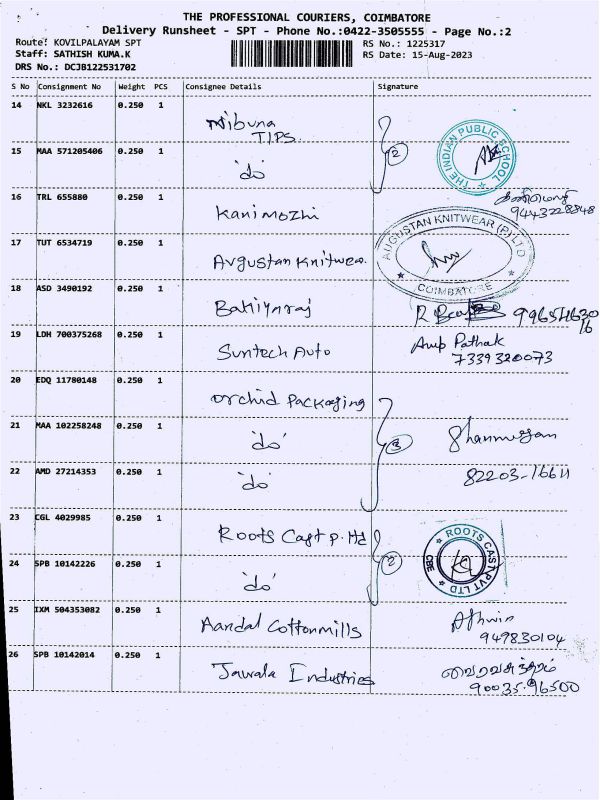 THE PROFESSIONAL COURIERS, COIMBATORE
Delivery Runsheet - SPT - Phone No.:0422-3505555 - Page No.:2
Route: KOVILPALAYAM SPT RS No.: 1225317
Staff: SATHISH KUMA.K RS Date: 15-Aug-2023
DRS No.: DCJB122531702
S No Consignment No Weight PCS Consignee Details Signature
14 NKL 3232616 0.250 1 Nibuna
TIPS
15 MAA 571205406 0.250 1 'do' 2 THE INDIAN PUBLIC SCHOOL
16 TRL 655880 0.250 1 Kanimozhi
9443228848
17 TUT 6534719 0.250 1 Avgustan Knitwea. AUGUSTAN KNITWEAR (P) LTD
COIMBATORE
18 ASD 3490192 0.250 1
19 LDH 700375268 0.250 1 Suntech Auto Anup Pathak
7339320073
20 EDQ 11780148 0.250 1 Orchid Packaging
21 MAA 102258248 0.250 1 'do' 3 Shanmugam
22 AMD 27214353 0.250 1 'do' 82203-16611
23 CGL 4029985 0.250 1 Roots Cast P. ltd ROOTS CAST PVT LTD
CBE
24 SPB 10142226 0.250 1 'do' 2
25 IXM 504353082 0.250 1 Aandal Cottonmills Athwin
949830104
26 SPB 10142014 0.250 1 Jawala Industries
90035-96500